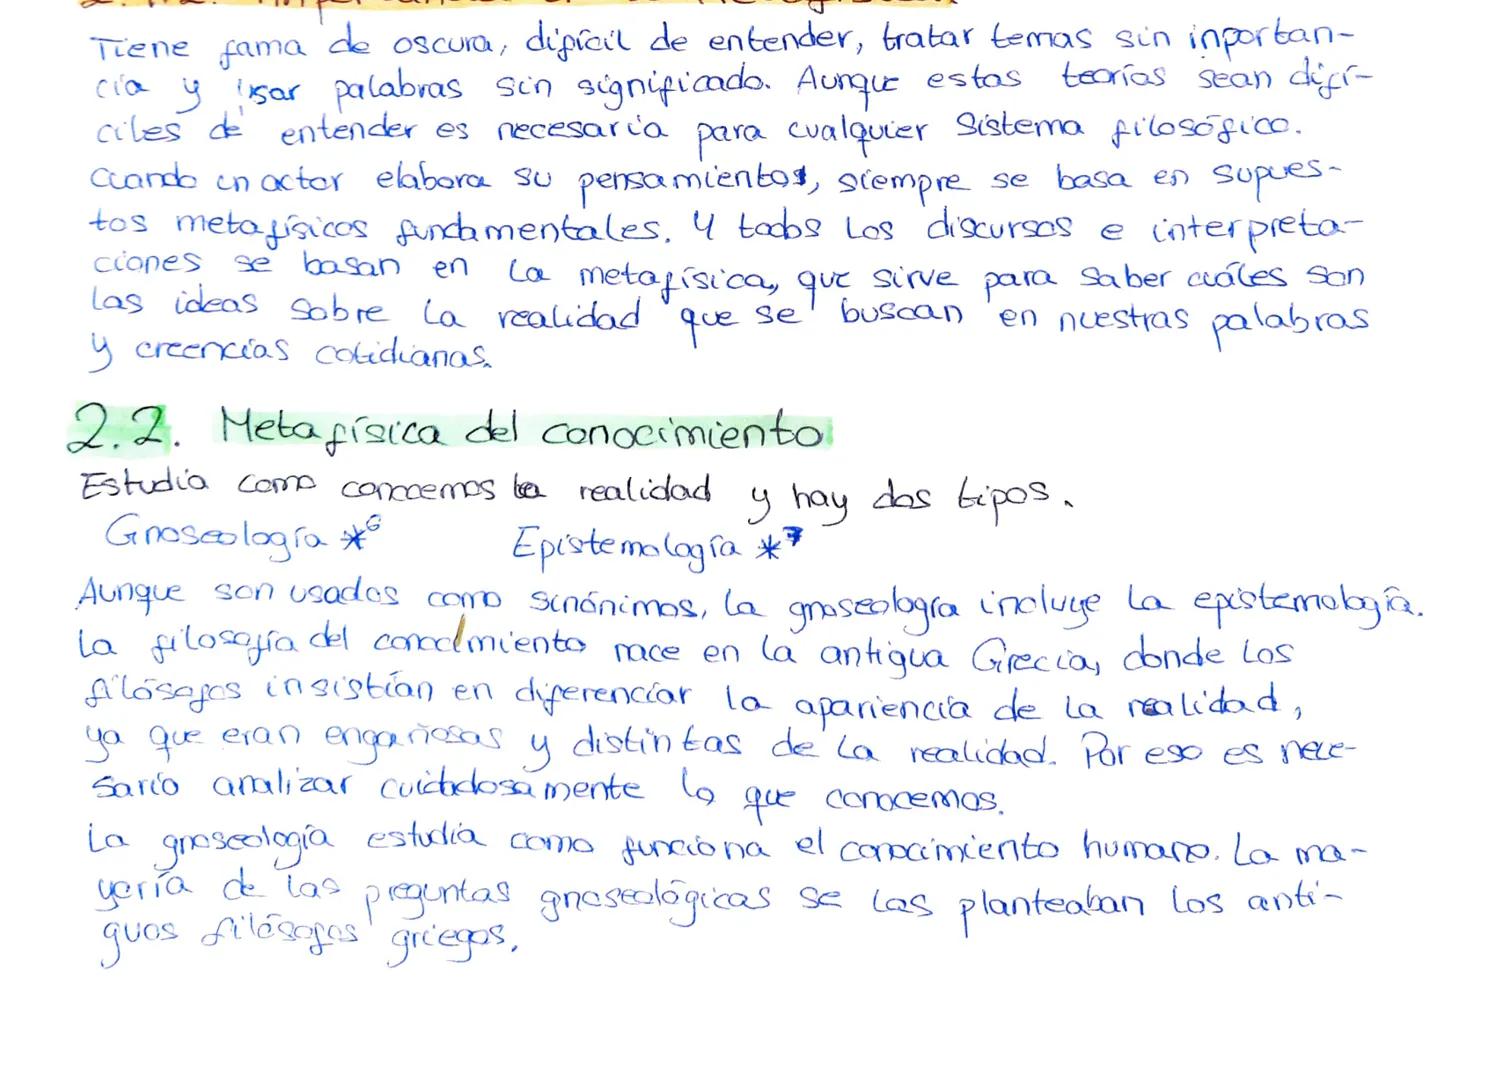 Tiene fama de oscura, difícil de entender, tratar temas sin inportan-
cia y usar palabras sin significado. Aunque estas teorías sean difí-
ciles de entender es necesaria para cualquier sistema filosófico.
Cuando un actor elabora su pensamientos, siempre se basa en supues-
tos metafísicos fundamentales. Y todos los discursos e interpreta-
ciones se basan en la metafísica, que sirve para saber cuáles son
las ideas sobre la realidad que se buscan en nuestras palabras
y creencias cotidianas.
2.2. Metafísica del conocimiento
Estudia como conocemos la realidad y hay dos tipos.
Gnoseología *6 Epistemología *7
Aunque son usados como sinónimos, la gnoseología incluye la epistemología.
La filosofía del conocimiento nace en la antigua Grecia, donde los
filósofos insistían en diferenciar la apariencia de la realidad,
ya que eran engañosas y distintas de la realidad. Por eso es nece-
sario analizar cuidadosamente lo que conocemos.
La gnoseología estudia como funciona el conocimiento humano. La ma-
yoría de las preguntas gnoseológicas se las planteaban los anti-
guos filósofos griegos.